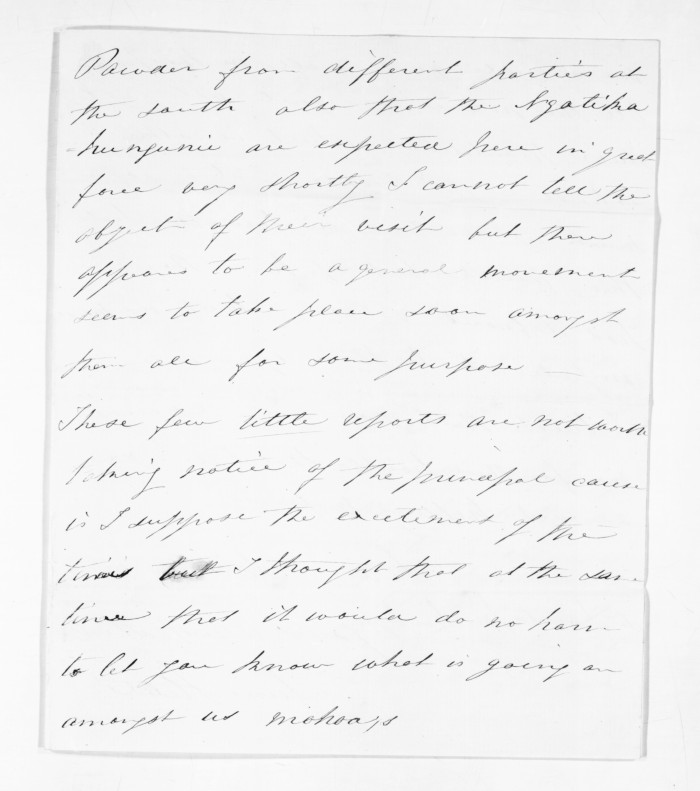 Powder from different parties at
the south also that the Ngatika
hungunie are expected here in great
force very shortly I cannot tell the
object of their visit but there
appears to be a general movement
seems to take place soon amongst
them all for some purpose —
These few little reports are not worth
taking notice of the principal cause
is I suppose the excitement of the
times but I thought that at the same
time that it would do no harm
to let you know what is going on
amongst us